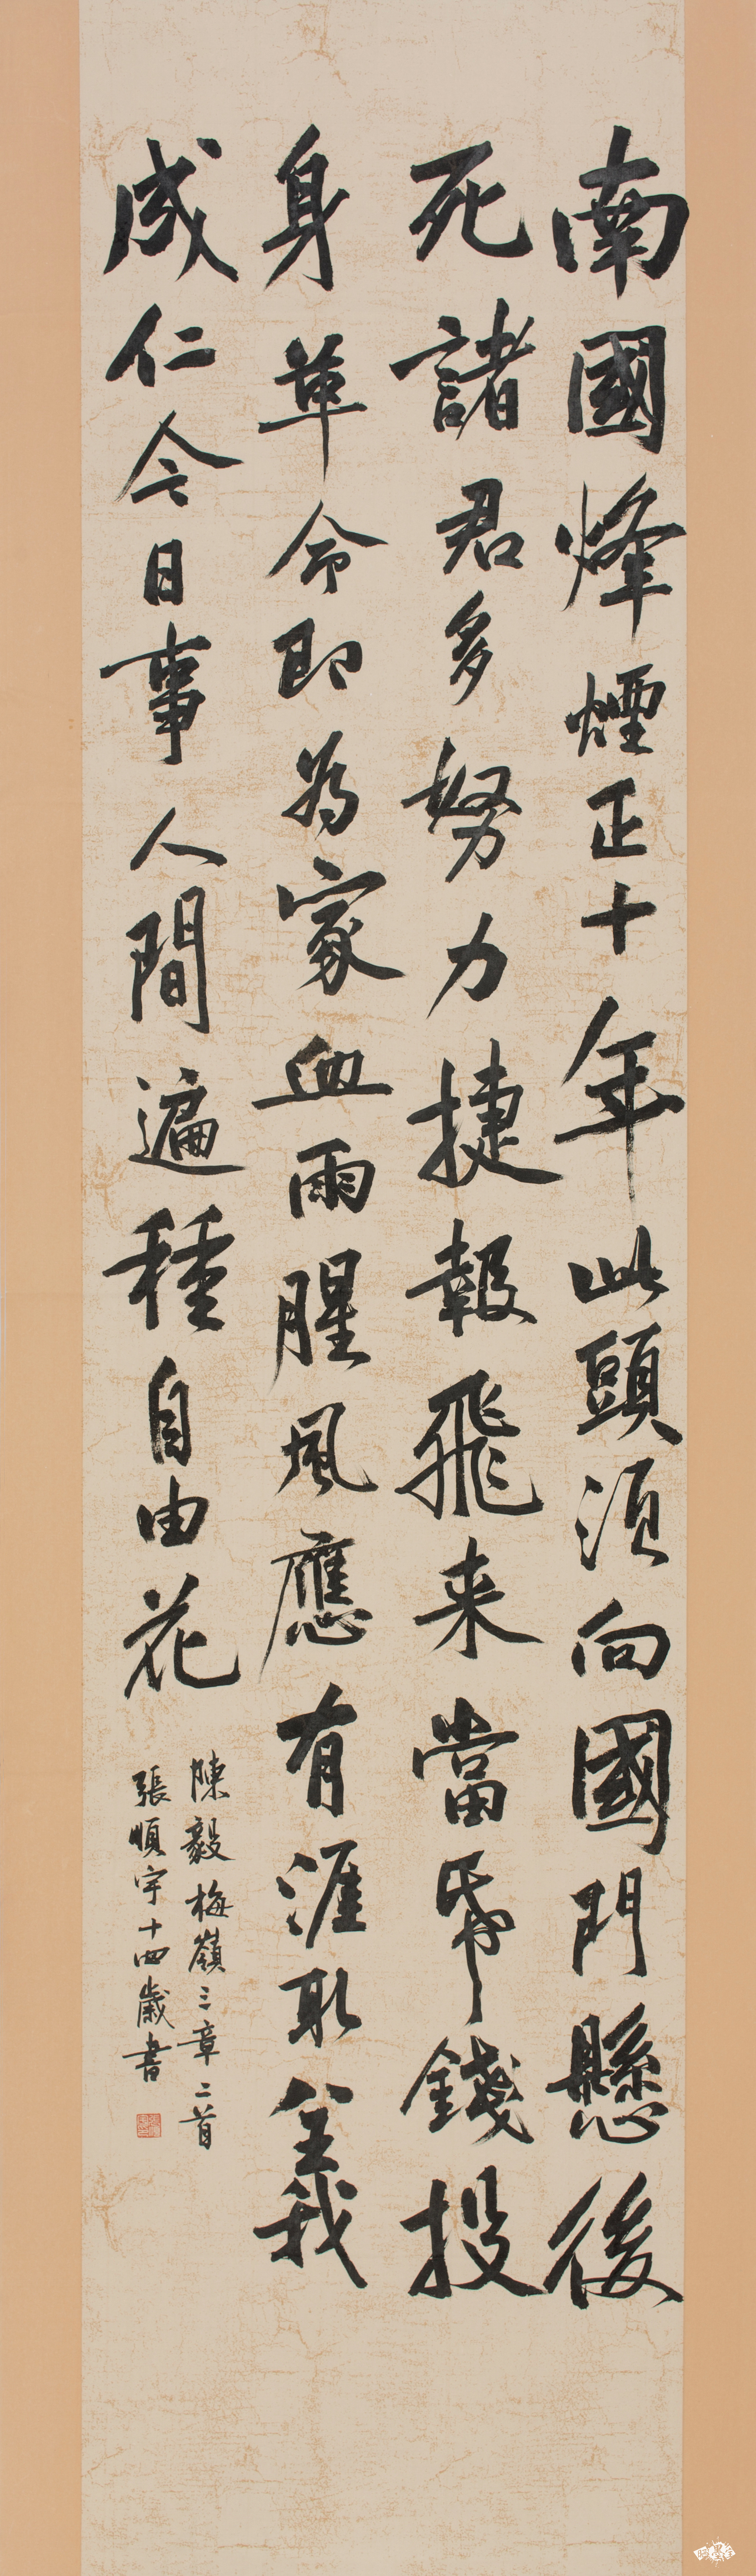 南國烽煙正十年此頭須向國門懸後
死諸君多努力捷報飛来當帋錢投
身革命即為家血雨腥風應有涯取義
成仁今日事人間遍種自由花
陳毅梅嶺三章二首
張順宇十四歲書